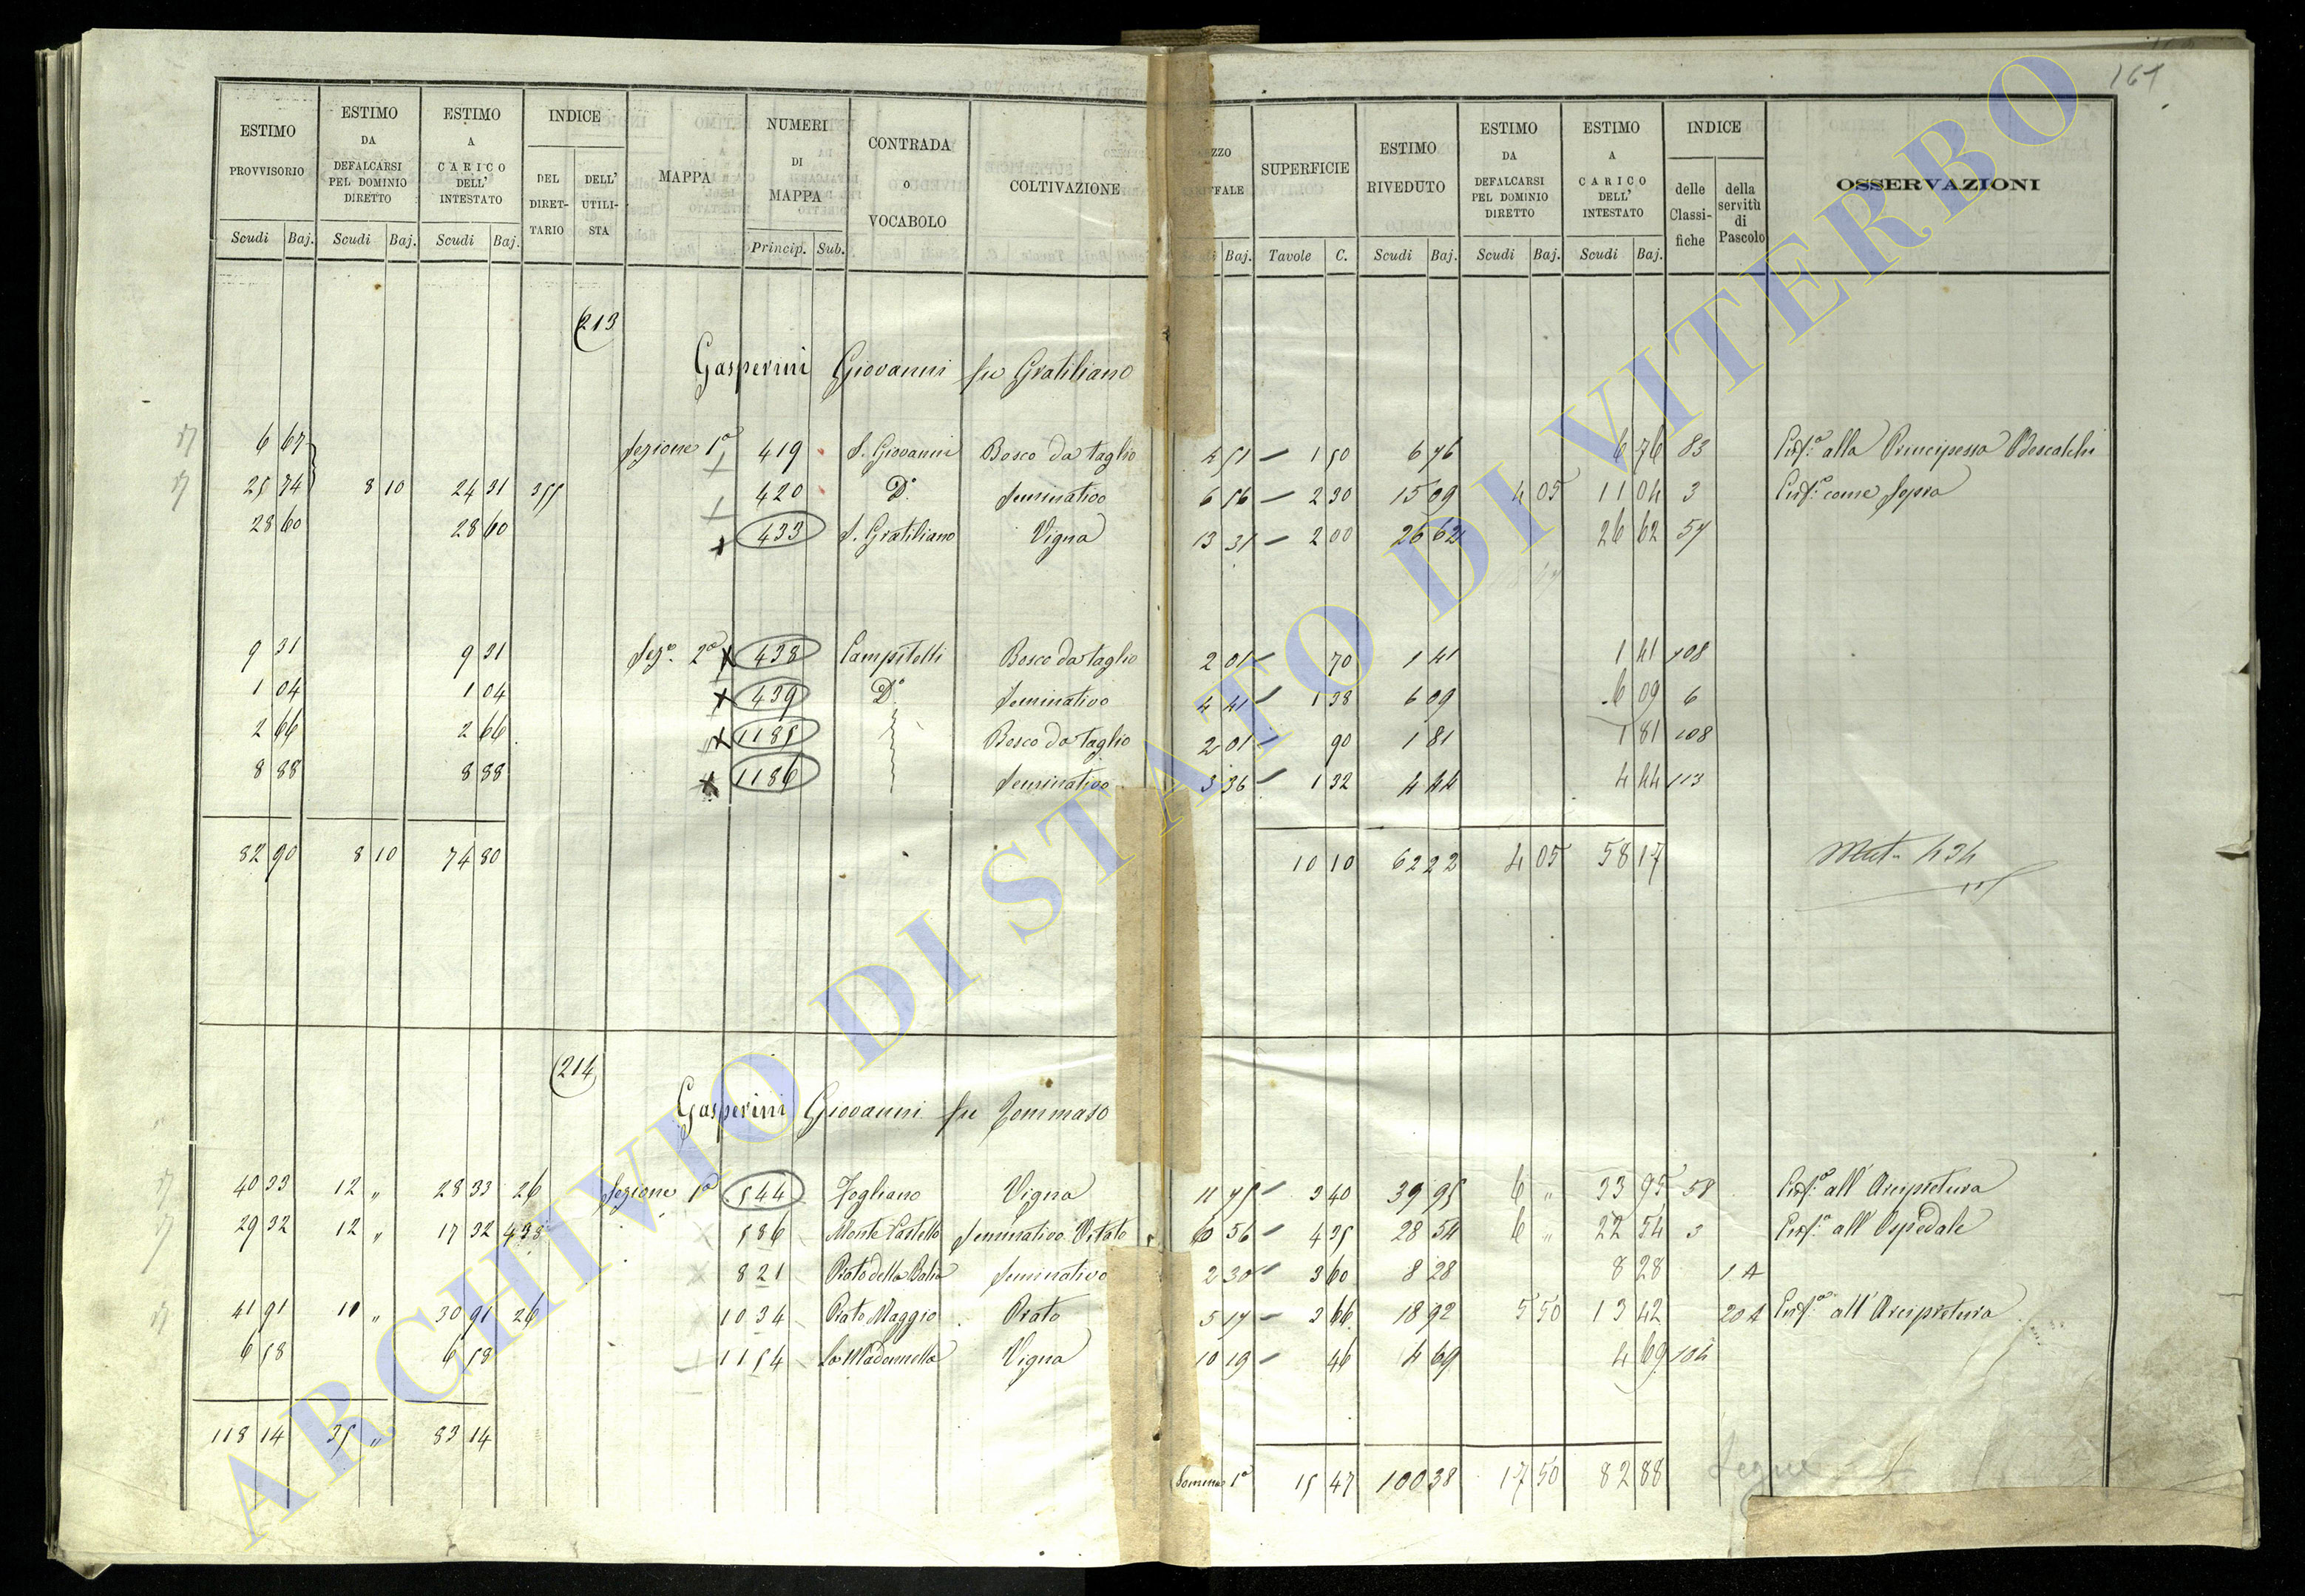 167
ESTIMO PROVVISORIO Scudi Baj. ESTIMO DA DEFALCARSI PEL DOMINIO DIRETTO Scudi Baj. ESTIMO A CARICO DELL' INTESTATO Scudi Baj. INDICE DEL DIRET-TARIO DELL' UTILI-STA MAPPA NUMERI DI MAPPA Princip. Sub. CONTRADA o VOCABOLO COLTIVAZIONE Baj. SUPERFICIE Tavole C. ESTIMO RIVEDUTO Scudi Baj. ESTIMO DA DEFALCARSI PEL DOMINIO DIRETTO Scudi Baj. ESTIMO A CARICO DELL' INTESTATO Scudi Baj. INDICE delle Classi-fiche della servitù di Pascolo OSSERVAZIONI
213
Gasperini Giovanni fu Gratiliano
17 6 67 Sezione 1ª 419 S. Giovanni Bosco da taglio 4 51 — 1 50 6 76 6 76 83 Enf.ª alla Principessa
17 25 74 8 10 24 31 355 420 D.º Seminativo 6 56 — 2 30 15 09 4 05 11 04 3 Enf.ª come sopra
28 60 28 60 433 S. Gratiliano Vigna 13 31 — 2 00 26 62 26 62 57
9 31 9 31 Sez.e 2ª 438 Campitelli Bosco da taglio 2 01 — 70 1 41 1 41 108
1 04 1 04 439 D.º Seminativo 4 41 — 1 38 6 09 6 09 6
2 66 2 66 1185 Bosco da taglio 2 01 — 90 1 81 1 81 108
8 88 8 88 1186 Seminativo 3 36 — 1 32 4 44 4 44 113
82 90 8 10 74 80 10 10 62 22 4 05 58 17 Mut. 434
214
Gasperini Giovanni fu Tommaso
17 40 33 12 „ 28 33 26 Sezione 1ª 544 Fogliano Vigna 11 75 — 3 40 39 95 6 „ 33 95 58 Enf.ª all' Arcipretura
17 29 32 12 „ 17 32 438 586 Monte Castello Seminativo Vitato 6 56 — 4 35 28 54 6 „ 22 54 3 Enf.ª all' Ospedale
821 Prato della Balia Seminativo 2 30 — 3 60 8 28 8 28 1 A
17 41 91 11 „ 30 91 26 1034 Prato Maggio Prato 5 17 — 3 66 18 92 5 50 13 42 20 A Enf.ª all' Arcipretura
6 58 6 58 1154 La Madonnella Vigna 10 19 — 46 4 69 4 69 104
118 14 35 „ 83 14
Somma 1ª 15 47 100 38 17 50 82 88 Segue
ARCHIVIO DI STATO DI VITERBO